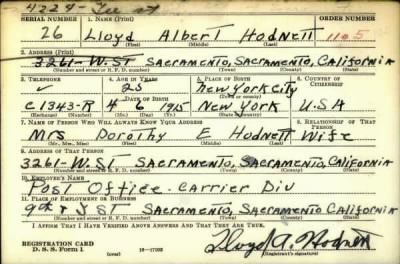 4224 - Tee 27
SERIAL NUMBER 1. NAME (Print) ORDER NUMBER
26 Lloyd Albert Hodnett 1105
(First) (Middle) (Last)
2. ADDRESS (Print)
3261-W.ST SACRAMENTO, SACRAMENTO, CALIFORNIA
(Number and street or R. F. D. number) (Town) (County) (State)
3. TELEPHONE 4. AGE IN YEARS 5. PLACE OF BIRTH 6. COUNTRY OF CITIZENSHIP
✓ 25 New York City
DATE OF BIRTH
C1343-R 4 6 1915 New York U.S.A
(Mo.) (Day) (Yr.) (State or country)
7. NAME OF PERSON WHO WILL ALWAYS KNOW YOUR ADDRESS 8. RELATIONSHIP OF THAT PERSON
Mrs Dorothy E Hodnett Wife
(Mr., Mrs., Miss) (First) (Middle) (Last)
9. ADDRESS OF THAT PERSON
3261-W.ST SACRAMENTO, SACRAMENTO, CALIFORNIA
(Number and street or R. F. D. number) (Town) (County) (State)
10. EMPLOYER'S NAME
Post Office - Carrier Div
11. PLACE OF EMPLOYMENT OR BUSINESS
9th & I ST SACRAMENTO, SACRAMENTO, CALIFORNIA
(Number and street or R. F. D. number) (Town) (County) (State)
I AFFIRM THAT I HAVE VERIFIED ABOVE ANSWERS AND THAT THEY ARE TRUE.
REGISTRATION CARD
D. S. S. Form 1 (over) 16-17105
Lloyd A. Hodnett
(Registrant's signature)